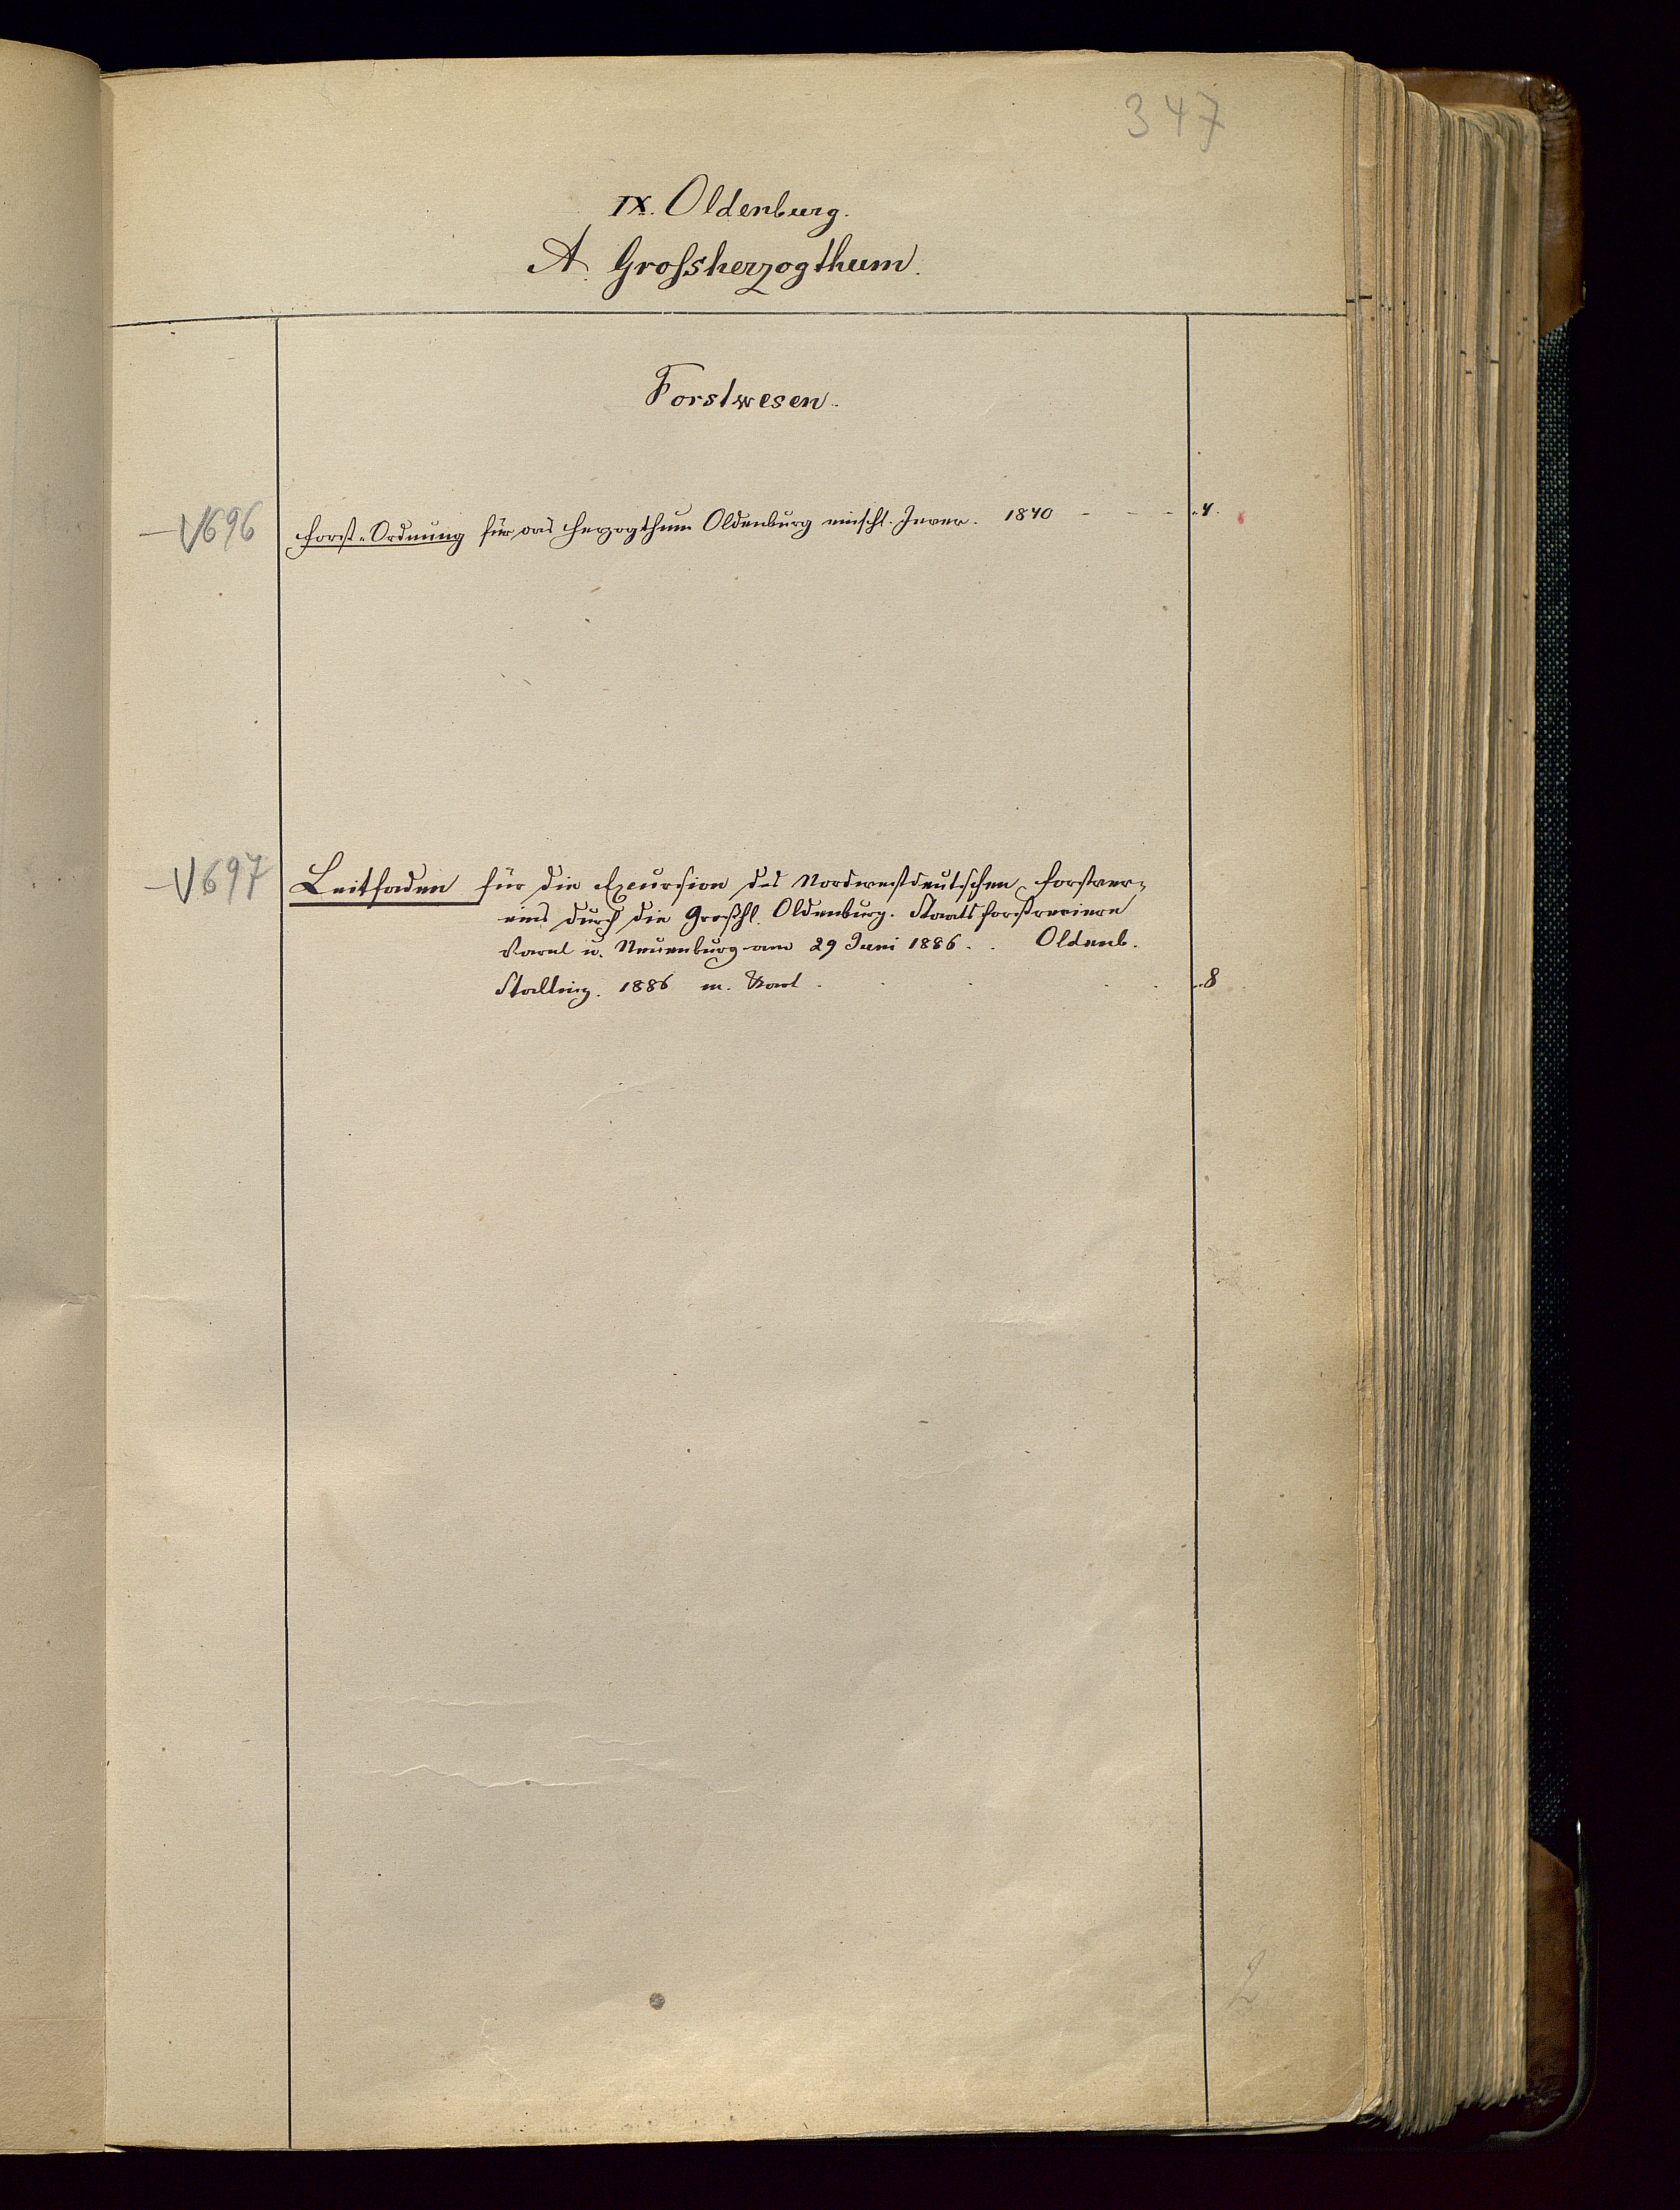 347
IX. Oldenburg.
A. Großherzogthum.
Forstwesen.
V696 Forst-Ordnung für das Herzogthum Oldenburg einschl. Jever. 1840 - - - 4.
V697 Leitfaden für die Excursion des Nordwestdeutschen Forstver-
eins durch die Großhl. Oldenburg. Staatsforstreviere
Varel u. Neuenburg am 29 Juni 1886. . Oldenb.
Stalling. 1886 m. . . . . . 8
2